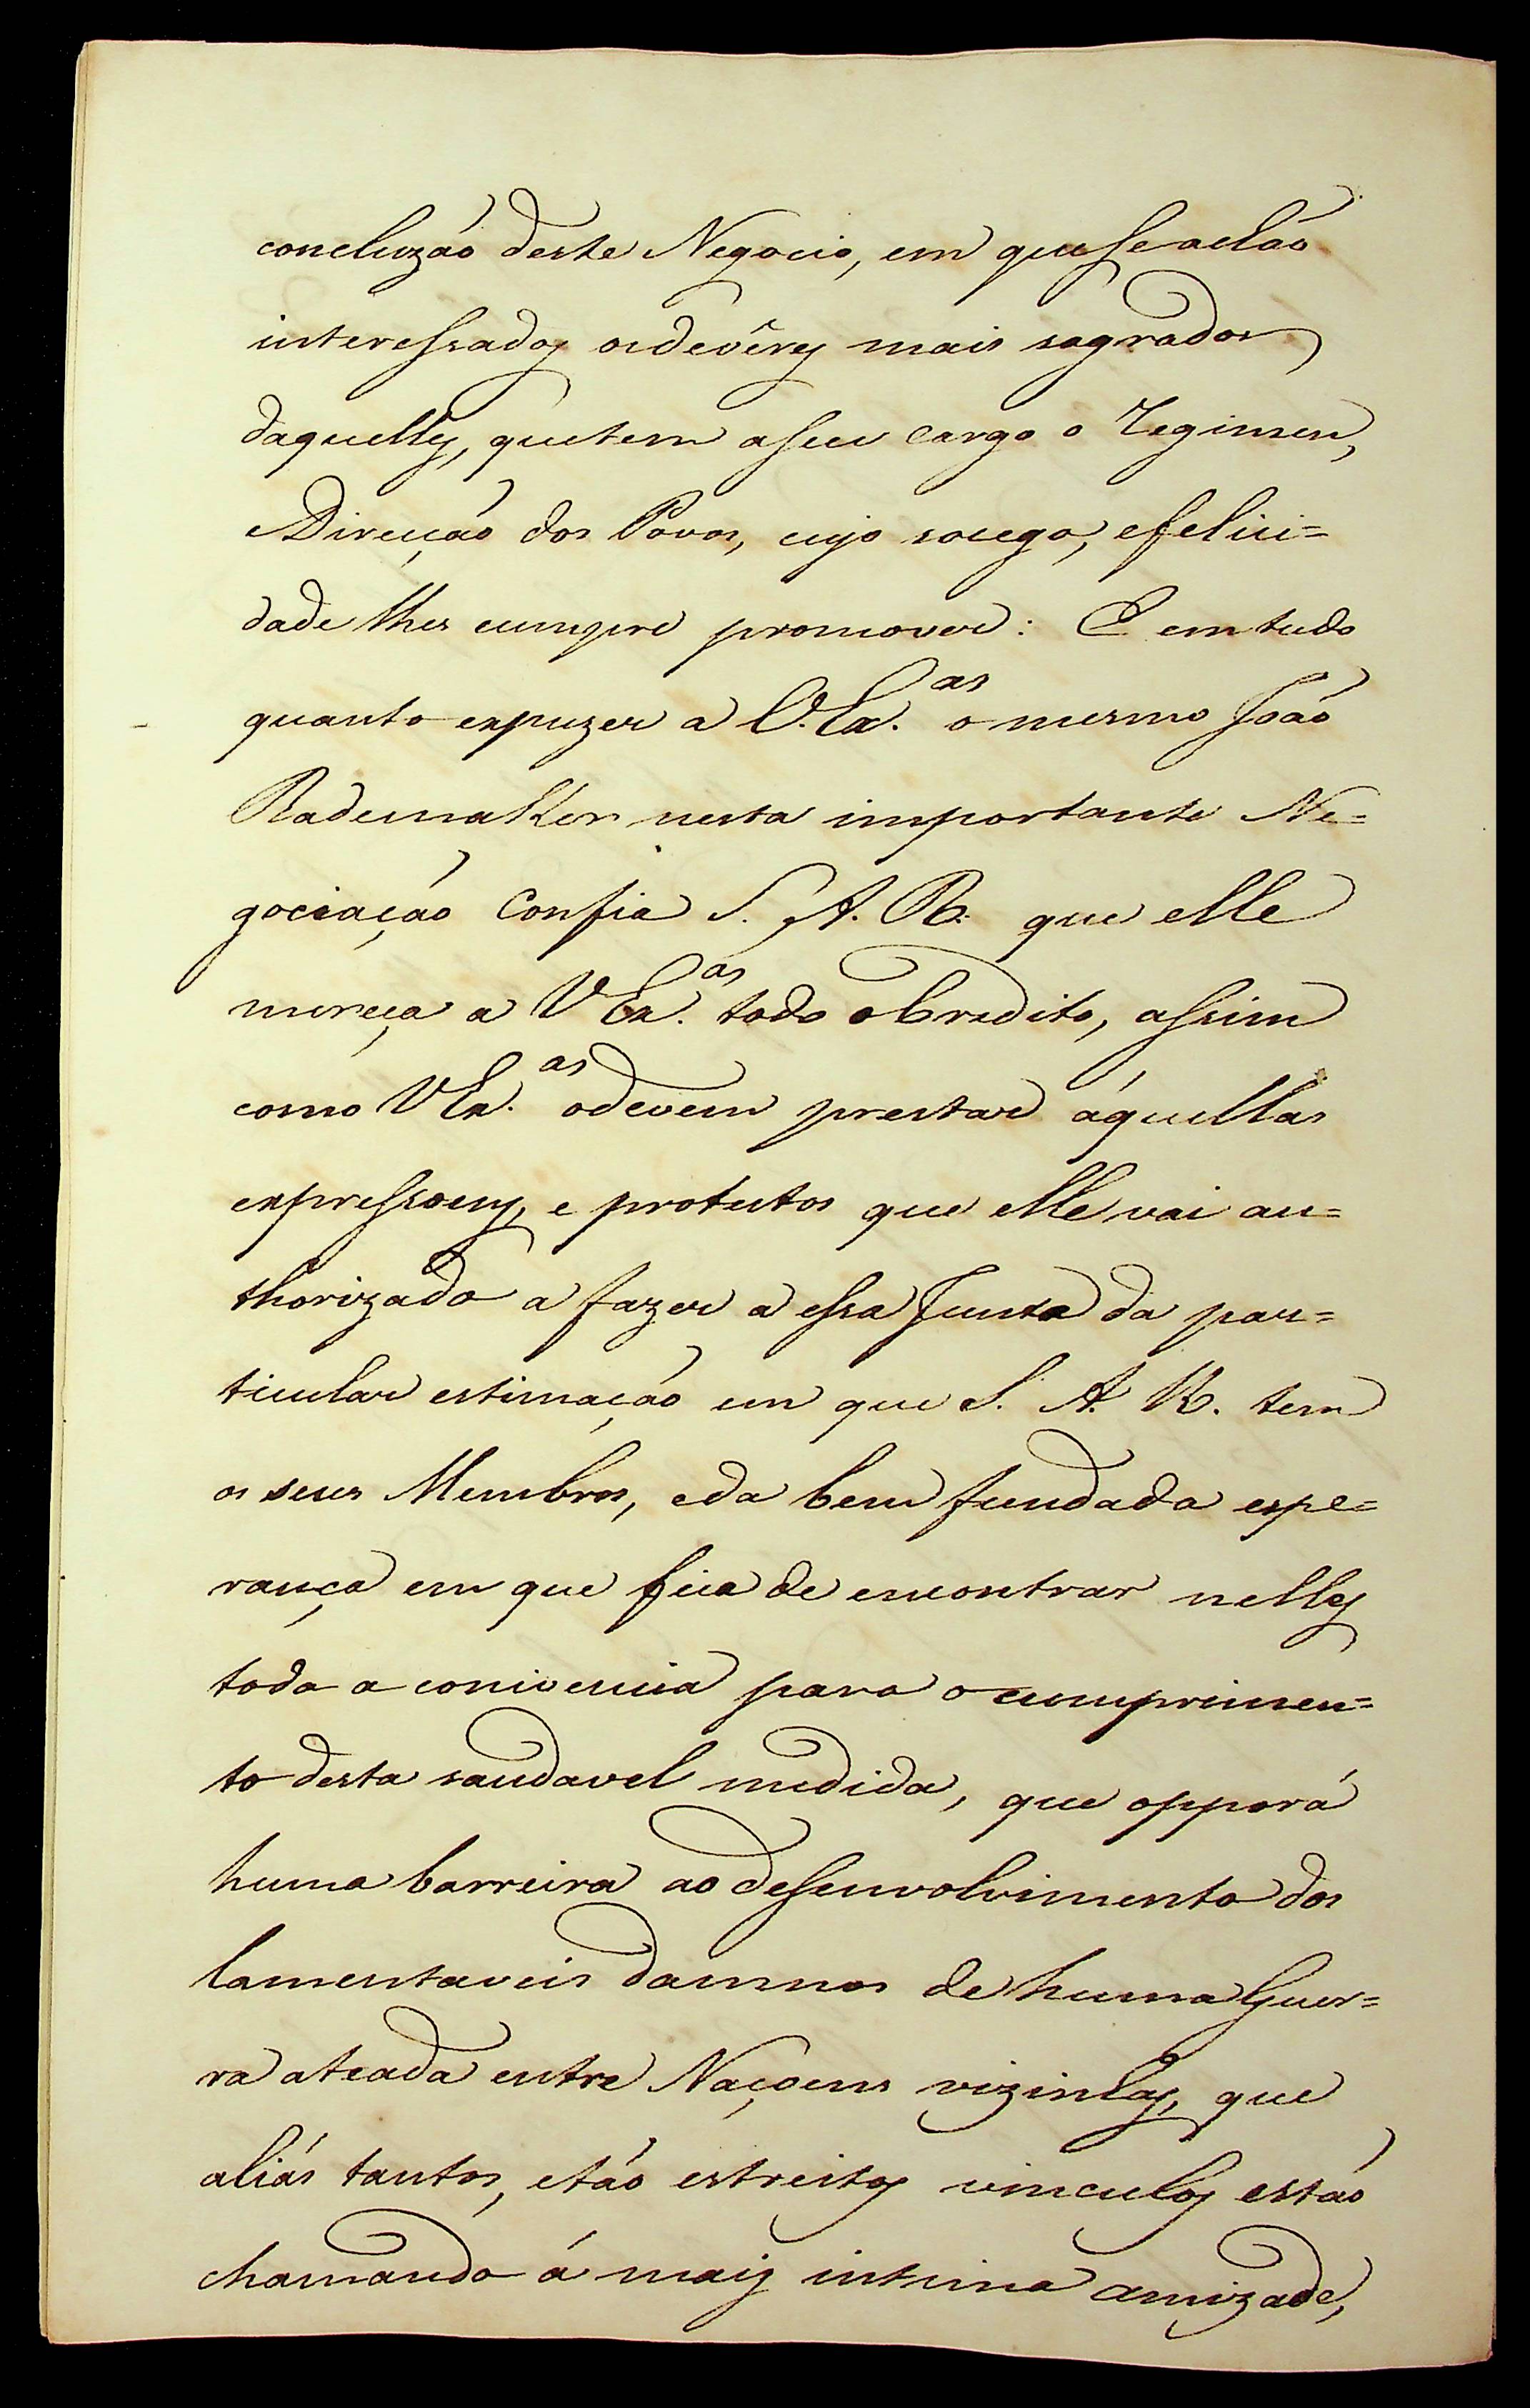 concluzaó deste Negocio, em que se achaó
interessados os devêres mais sagrados
daquelles, que tem a seu cargo o Regimen,
e Direcçaó dos Povos, cujo socego, e felici=
dade lhes cumpre promover: E em tudo
quanto expuzer a V. Ex.as o mesmo Joaó
Rademaker nesta importante Ne=
gociaçaó Confia S. A. R. que elle
mereça a V Ex.as todo o Credito, assim
como V Ex.as o devem prestar áquellas
expressoens, e protestos que elle vai au=
thorizado a fazer a essa Junta da par=
ticular estimaçaó em que S. A. R. tem
os seus Membros, e da bem fundada espe=
rança em que fica de encontrar nelles
toda a conivencia para o cumprimen=
to desta saudavel medida, que opporá
huma barreira ao desenvolvimento dos
lamentaveis damnos de huma Guer=
ra ateada entre Naçoens vizinhas, que
aliás tantos, e taó estreitos vinculos estaó
chamando á mais intima amizade,